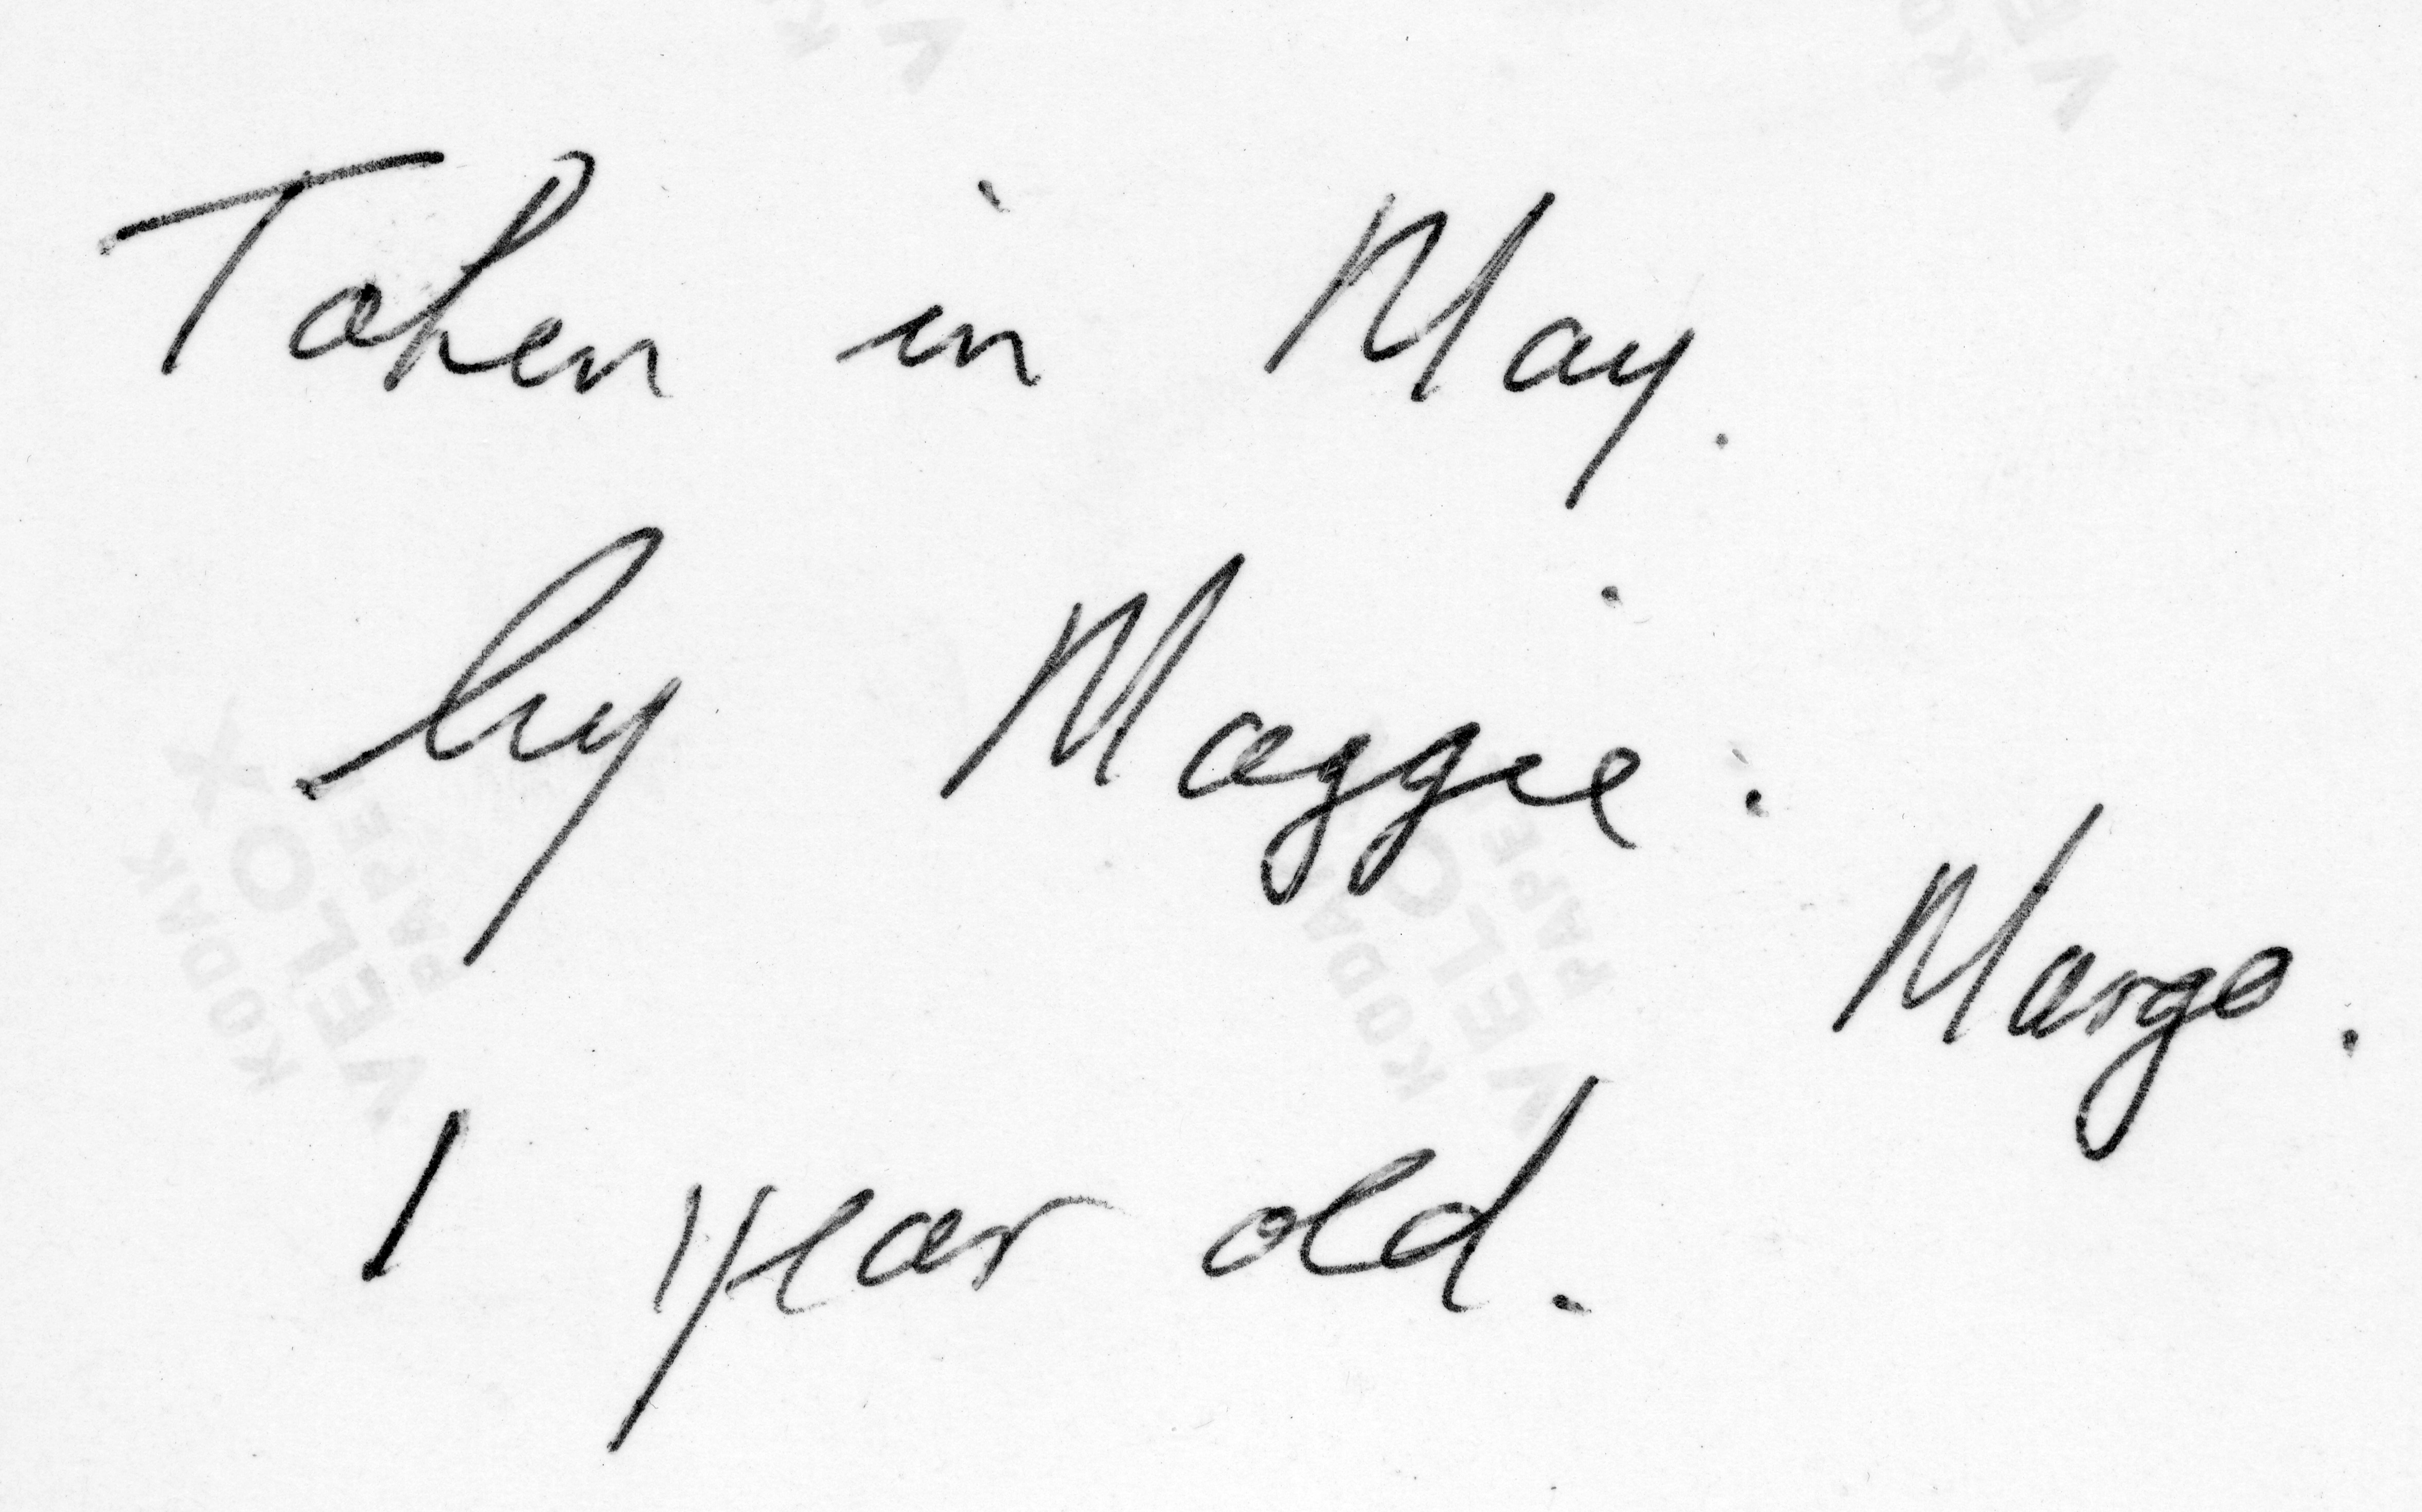 Taken in May.
by Maggie.
Margo.
1 year old.
KODAK
VELOX
PAPE
KODAK
VELOX
PAPE